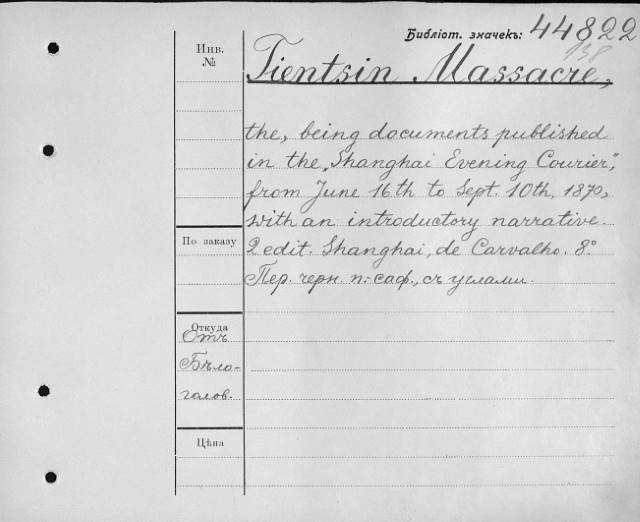 Библіот. значекъ: 44822
138
Инв.
№
Tientsin Massacre,
the, being documents published
in the „Shanghai Evening Courier“,
from June 16th to Sept. 10th, 1870,
with an introductory narrative.
По заказу
2 edit. Shanghai, de Carvalho. 8°.
Пер. черн. п.-саф., съ углами.
Откуда
Отъ
Бѣло-
голов.
Цѣна